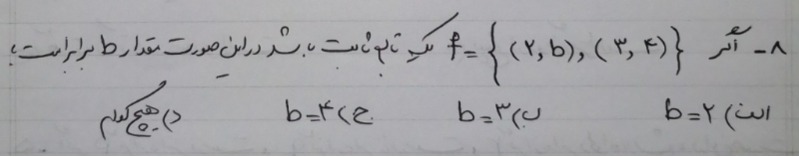 ۸- اگر f = { (۲, b) , (۳, ۴) } یک تابع ثابت باشد در این صورت مقدار b برابر است با
الف) b = ۲ ب) b = ۳ ج) b = ۴ د) هیچ کدام